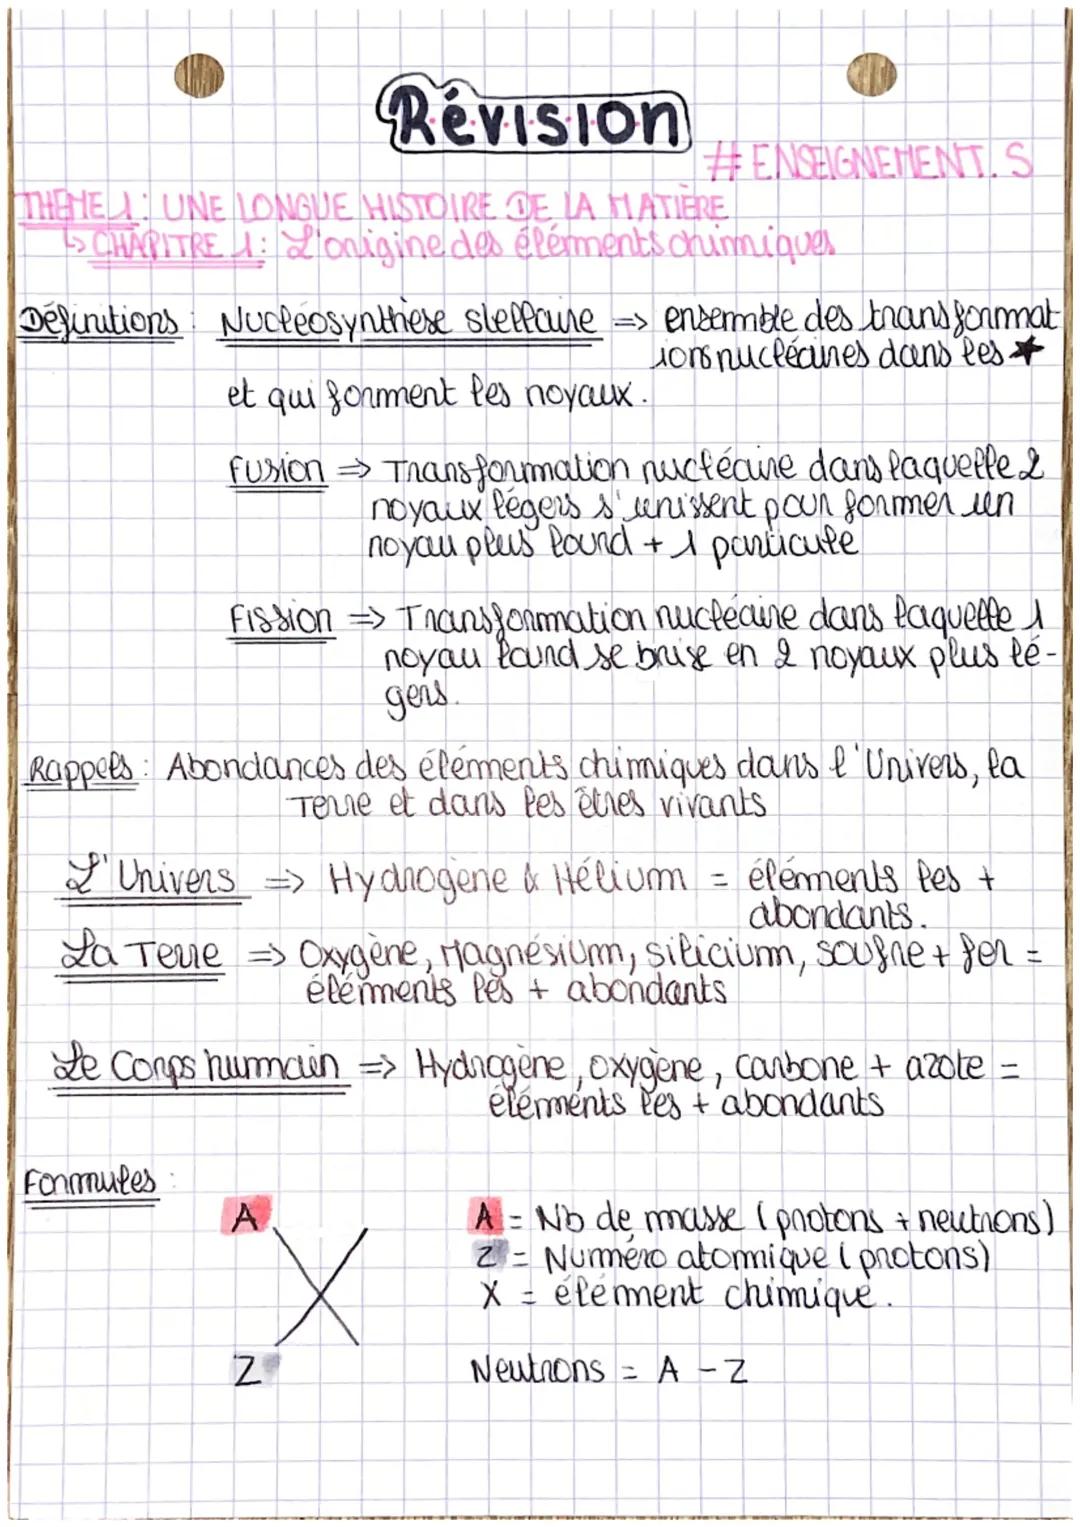 Révision
# ENSEIGNEMENT. S
THEME 1 : UNE LONGUE HISTOIRE DE LA MATIÈRE
↳ CHAPITRE 1 : L'origine des éléments chimiques
Définitions : Nucléosynthèse stellaire => ensemble des transformat
ions nucléaires dans les ★
et qui forment les noyaux.
Fusion => Transformation nucléaire dans laquelle 2
noyaux légers s'unissent pour former un
noyau plus lourd + 1 particule
Fission => Transformation nucléaire dans laquelle 1
noyau lourd se brise en 2 noyaux plus lé-
gers.
Rappels : Abondances des éléments chimiques dans l'Univers, la
Terre et dans les êtres vivants
L'Univers => Hydrogène & Hélium = éléments les +
abondants.
La Terre => Oxygène, Magnésium, silicium, soufre + fer =
éléments les + abondants
Le Corps humain => Hydrogène, oxygène, carbone + azote =
éléments les + abondants
Formules :
A
A = Nb de masse (protons + neutrons)
Z = Numéro atomique (protons)
X
X = élément chimique.
Z
Neutrons = A - Z